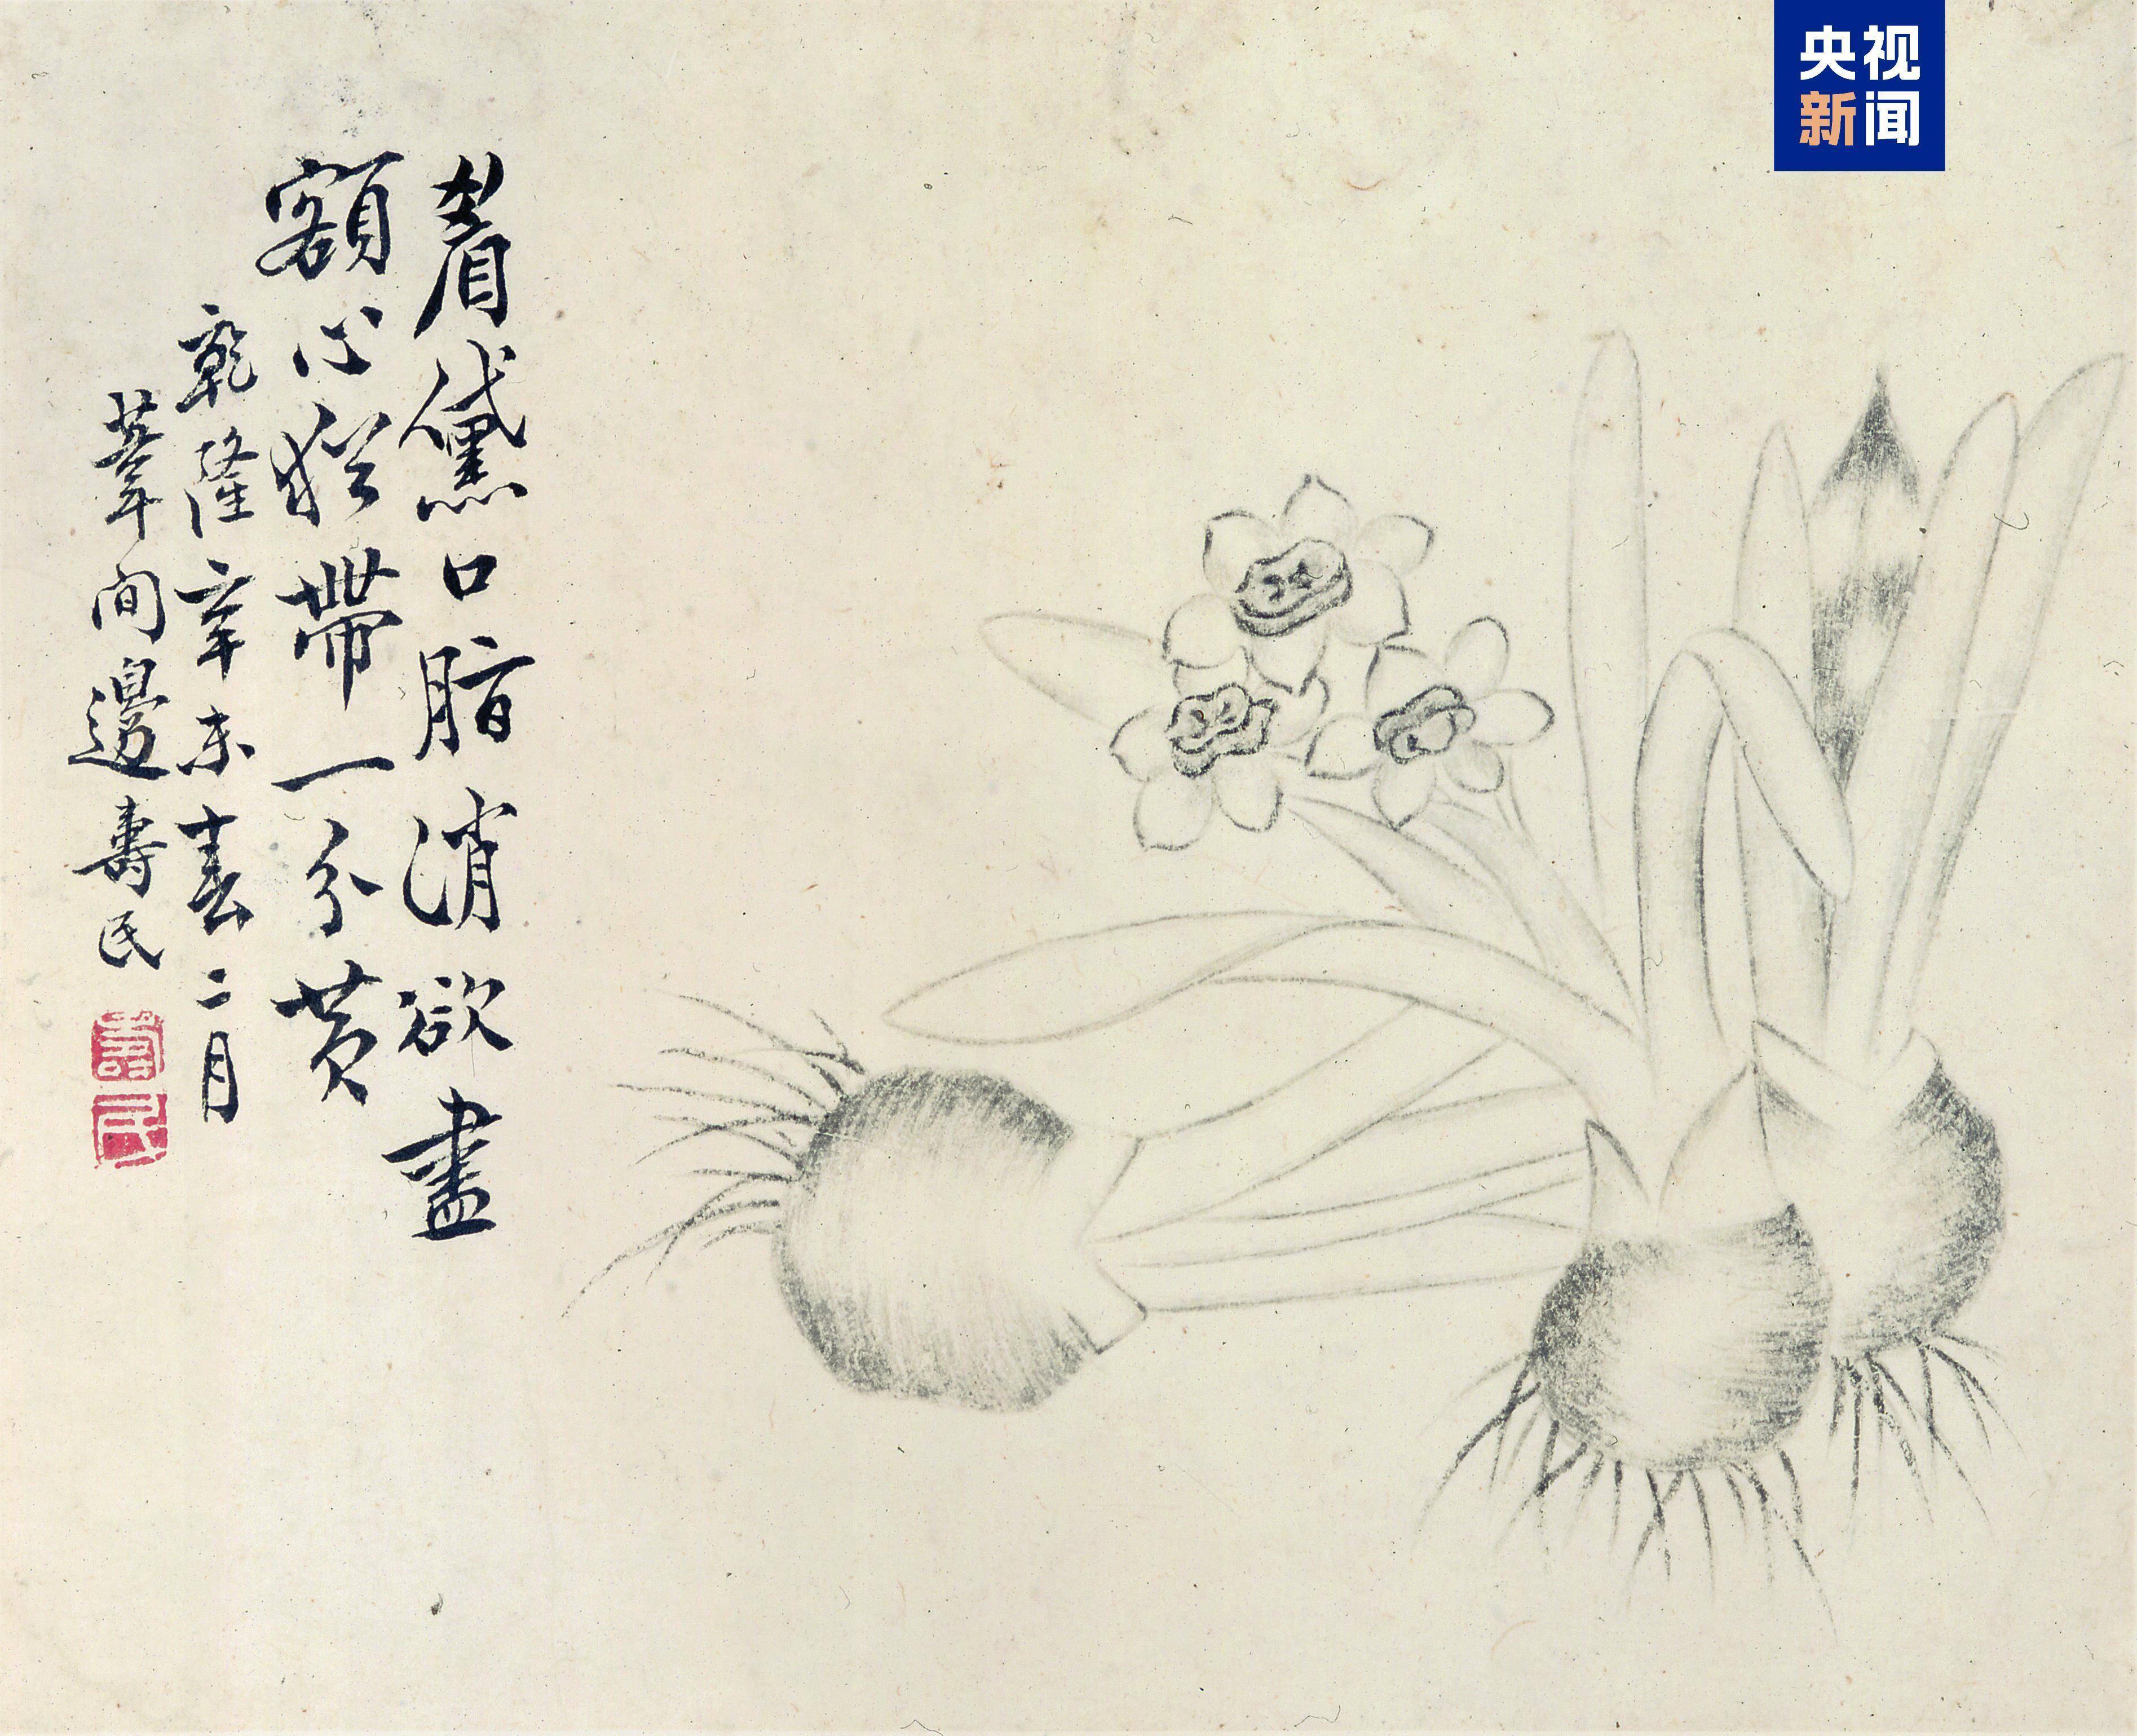 眉黛口脂消欲盡
額心猶帶一分黄
乾隆辛未春二月
葦间邊壽民
壽
民
央视
新闻